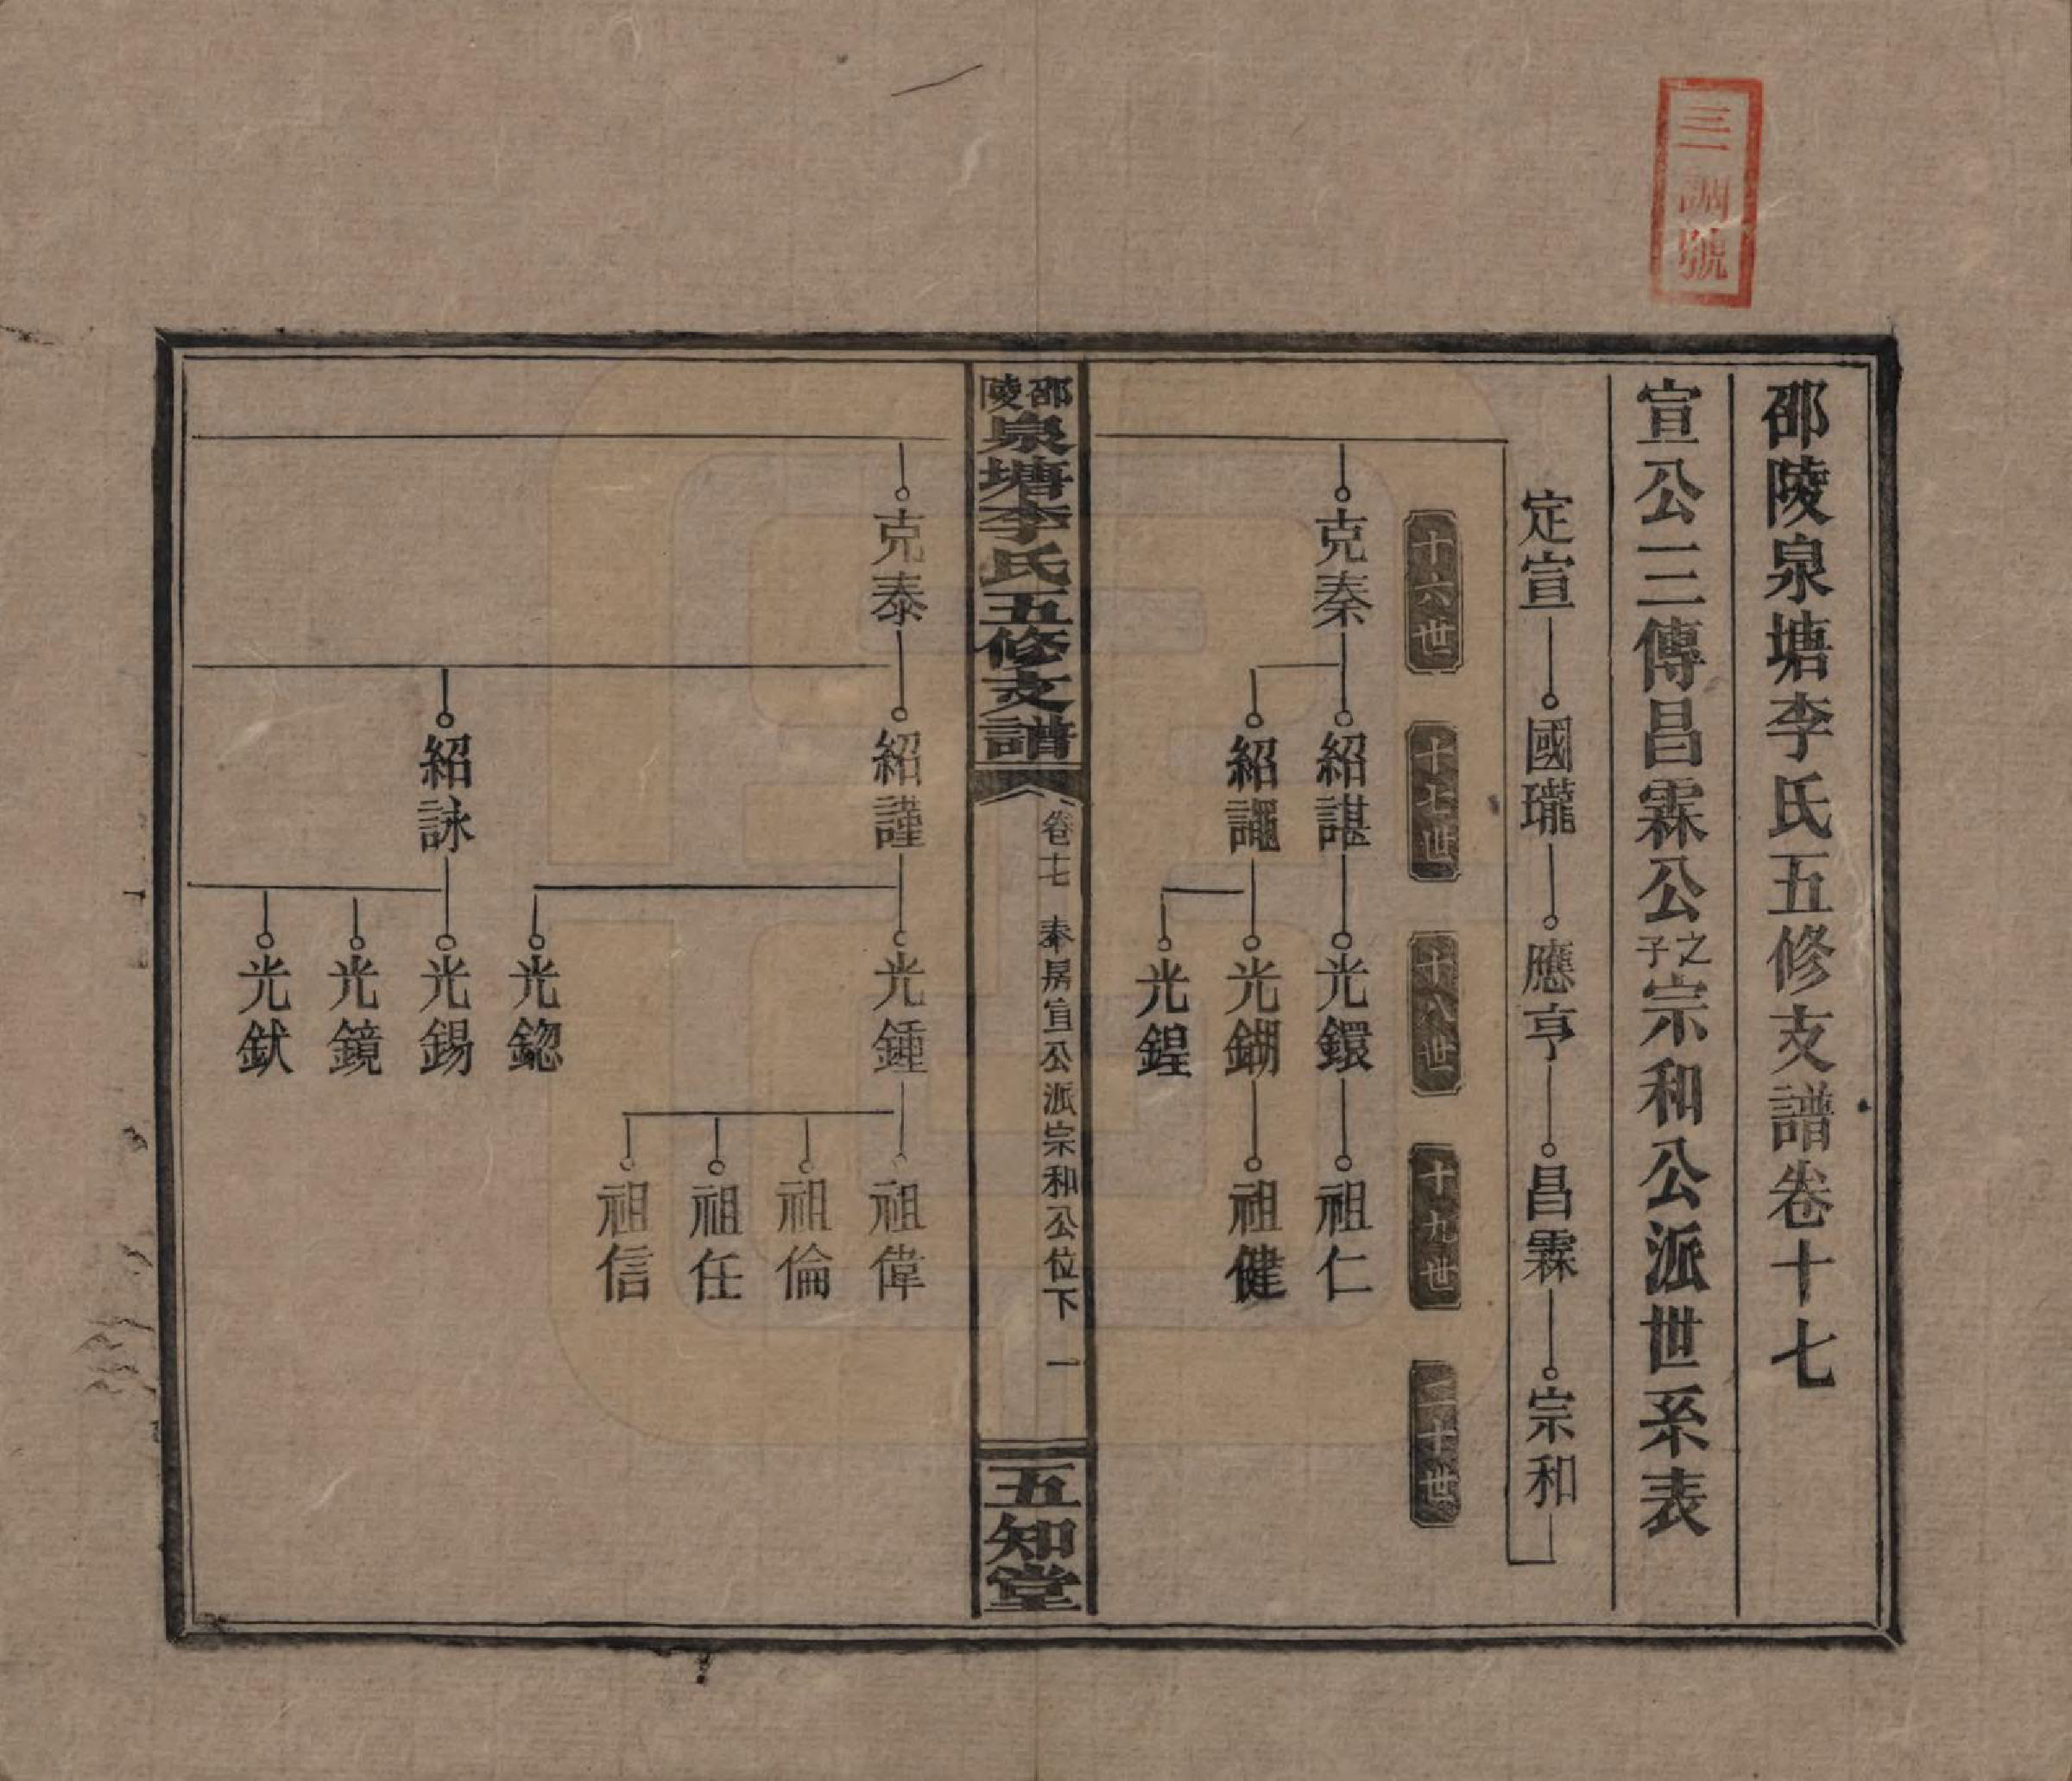 三調號
邵陵泉塘李氏五修支譜卷十七
宣公三傳昌霖公之子宗和公派世系表
定宣 國瓏 應亨 昌霖 宗和
十六世 十七世 十八世 十九世 二十世
克秦 紹諶 光鐶 祖仁
紹譝 光鍸 祖健
光鍟
邵陵泉塘李氏五修支譜
卷十七 奉房宣公派宗和公位下 一
五知堂
克泰 紹謹 光鍾 祖偉
祖倫
祖任
祖信
光鍃
紹詠 光錫
光鏡
光鈇